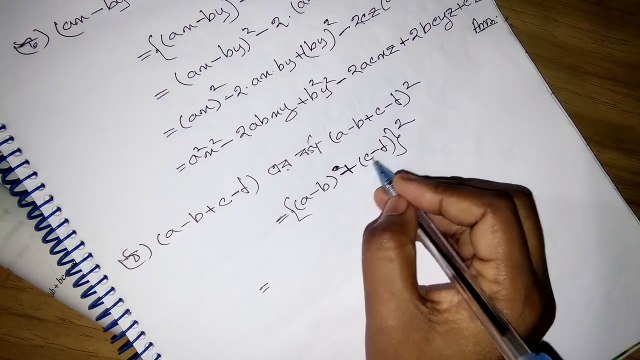 (ax-by
= {(ax-by)
= (ax-by)² - 2.(a
= (ax)² - 2.ax.by + (by)² - 2cz(
= a²x² - 2abxy + b²y² - 2acxz + 2bcyz + c
Ans.
(a-b+c-d) এর বর্গ (a-b+c-d)²
= {(a-b) + (c-d)}²
=